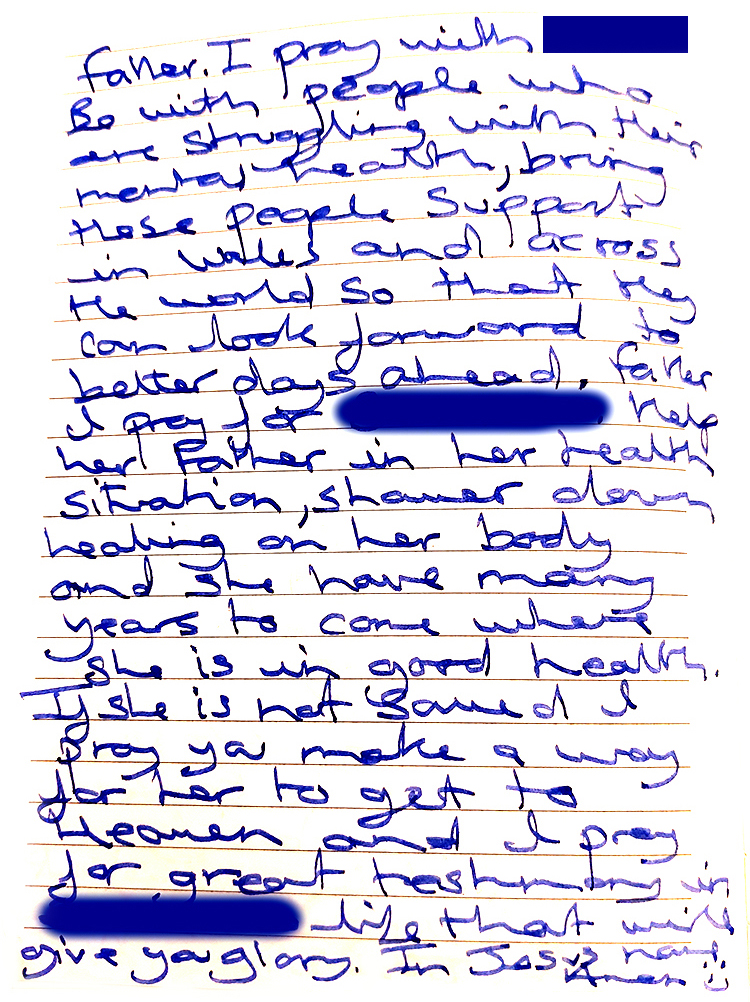 father. I pray with
Be with people who
are struggling with their
mental health, bring
these people support
in wales and across
the world so that they
can look forward to
better days ahead. father
I pray for help
her Father in her health
situation, shower down
healing on her body
and she have many
years to come where
she is in good health.
If she is not saved I
pray you make a way
for her to get to
Heaven and I pray
for great testimony in
life that will
give you glory. In Jesus name
Amen